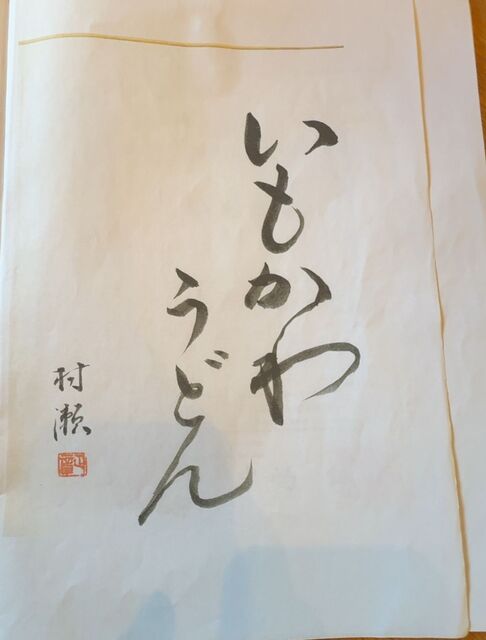 いもかわ
うどん
村瀬